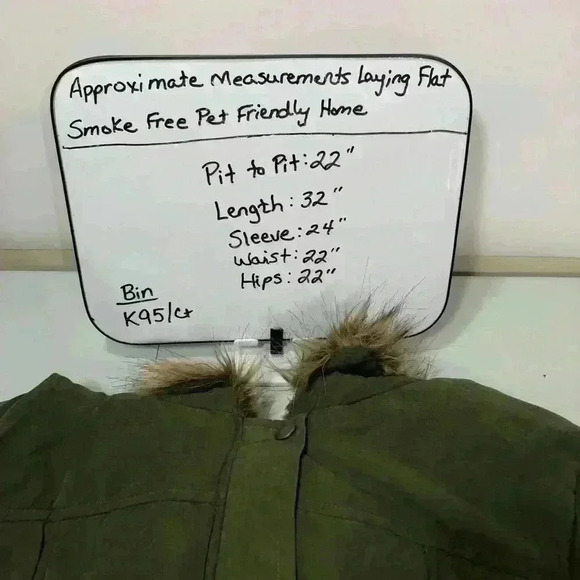 Approximate Measurements Laying Flat
Smoke Free Pet Friendly Home
Pit to Pit: 22"
Length: 32"
Sleeve: 24"
Waist: 22"
Hips: 22"
Bin
K95/Ct